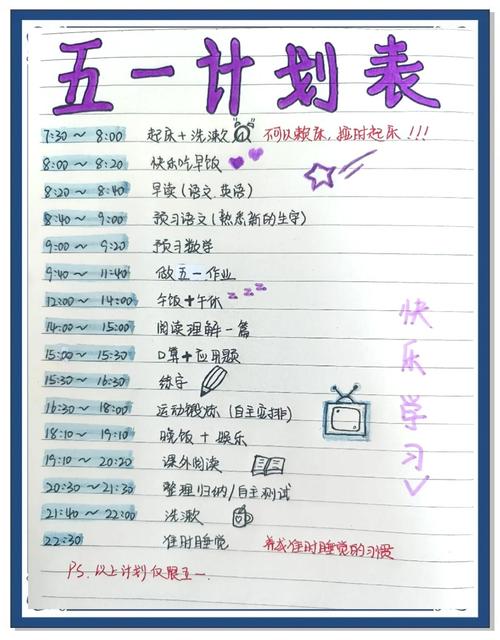 五一计划表
7:30～8:00 起床+洗漱 不可以赖床,按时起床!!!
8:00～8:20 快乐吃早饭
8:20～8:40 早读(语文.英语)
8:40～9:00 预习语文(熟悉新的生字)
9:00～9:20 预习数学
9:40～11:40 做五一作业
12:00～14:00 午饭+午休 zzz
14:00～15:00 阅读理解一篇
15:00～15:30 口算+应用题
15:30～16:30 练字
16:30～18:00 运动锻炼(自主安排)
18:10～19:10 晚饭+娱乐
19:10～20:20 课外阅读
20:30～21:30 整理归纳/自主测试
21:40～22:00 洗漱
22:30 准时睡觉 养成准时睡觉的习惯
PS.以上计划仅限五一.
快乐学习